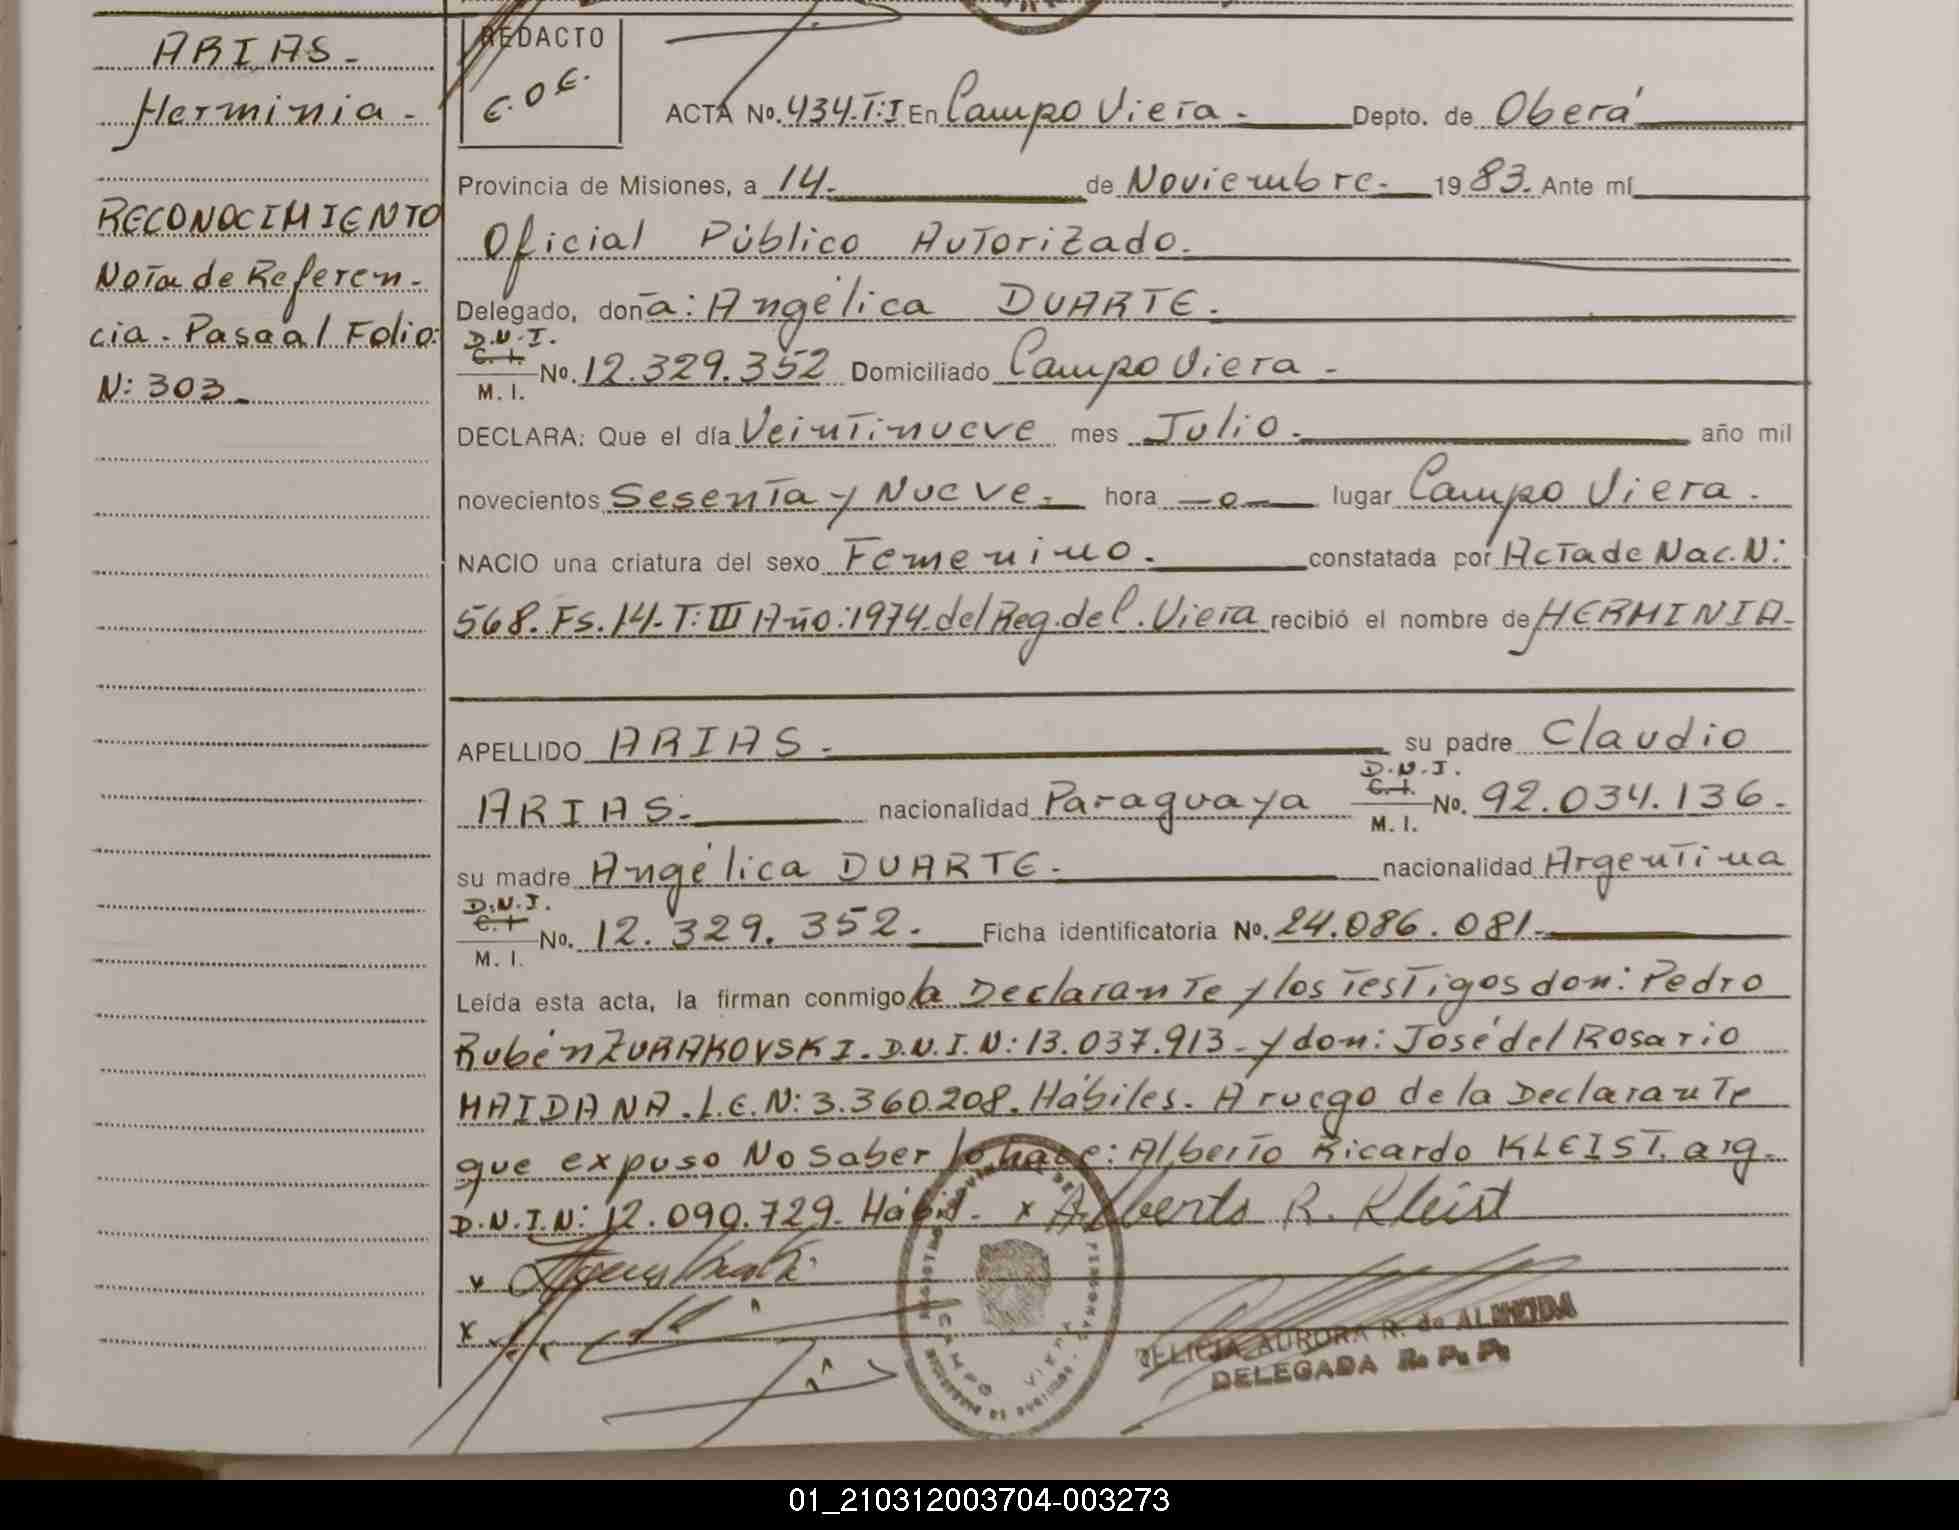 ARIAS-
Herminia-
RECONOCIMIENTO
Nota de Referen-
cia-Pasa al Folio:
N: 303-
REDACTO
C.O.E.
ACTA No. 434.T:I En Campo Viera- Depto. de Oberá
Provincia de Misiones, a 14. de Noviembre- 1983. Ante mí
Oficial Público Autorizado.
Delegado, doña: Angélica DUARTE.
D.N.I.
C.I.
M. I.
No. 12.329.352 Domiciliado Campo Viera-
DECLARA: Que el día Veintinueve mes Julio. año mil
novecientos Sesenta y Nueve- hora -o- lugar Campo Viera-
NACIO una criatura del sexo Femenino. constatada por Acta de Nac.N:
568. Fs.14-T:III Año:1974.del Reg.de C.Viera recibió el nombre de HERMINIA-
APELLIDO ARIAS- su padre Claudio
D.N.I.
C.I.
M. I.
ARIAS- nacionalidad Paraguaya No. 92.034.136-
su madre Angélica DUARTE- nacionalidad Argentina
D.N.I.
C.I
M. I.
No. 12.329.352. Ficha identificatoria No. 24.086.081-
Leída esta acta, la firman conmigo la Declarante y los Testigos don: Pedro
Rubén ZURAKOVSKI.D.N.I.N:13.037.913-y don: José del Rosario
MAIDANA.L.E.N:3.360.208.Hábiles. A ruego de la Declarante
que expuso No Saber lo hace: Alberto Ricardo KLEIST. arg-
D.N.I.N: 12.090.729. Hábil- x Alberto R. Kleist
x
x
CAMPO VIERA
FELICIA AURORA R. de ALMEIDA
DELEGADA R. P. P.
01_210312003704-003273